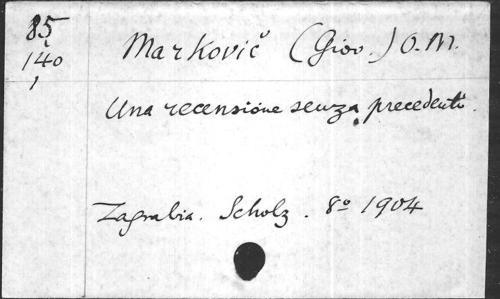 85
140
1
Markovič (Giov.) O. M.
Una recensione senza precedenti.
Zagrabia. Scholz. 8º 1904